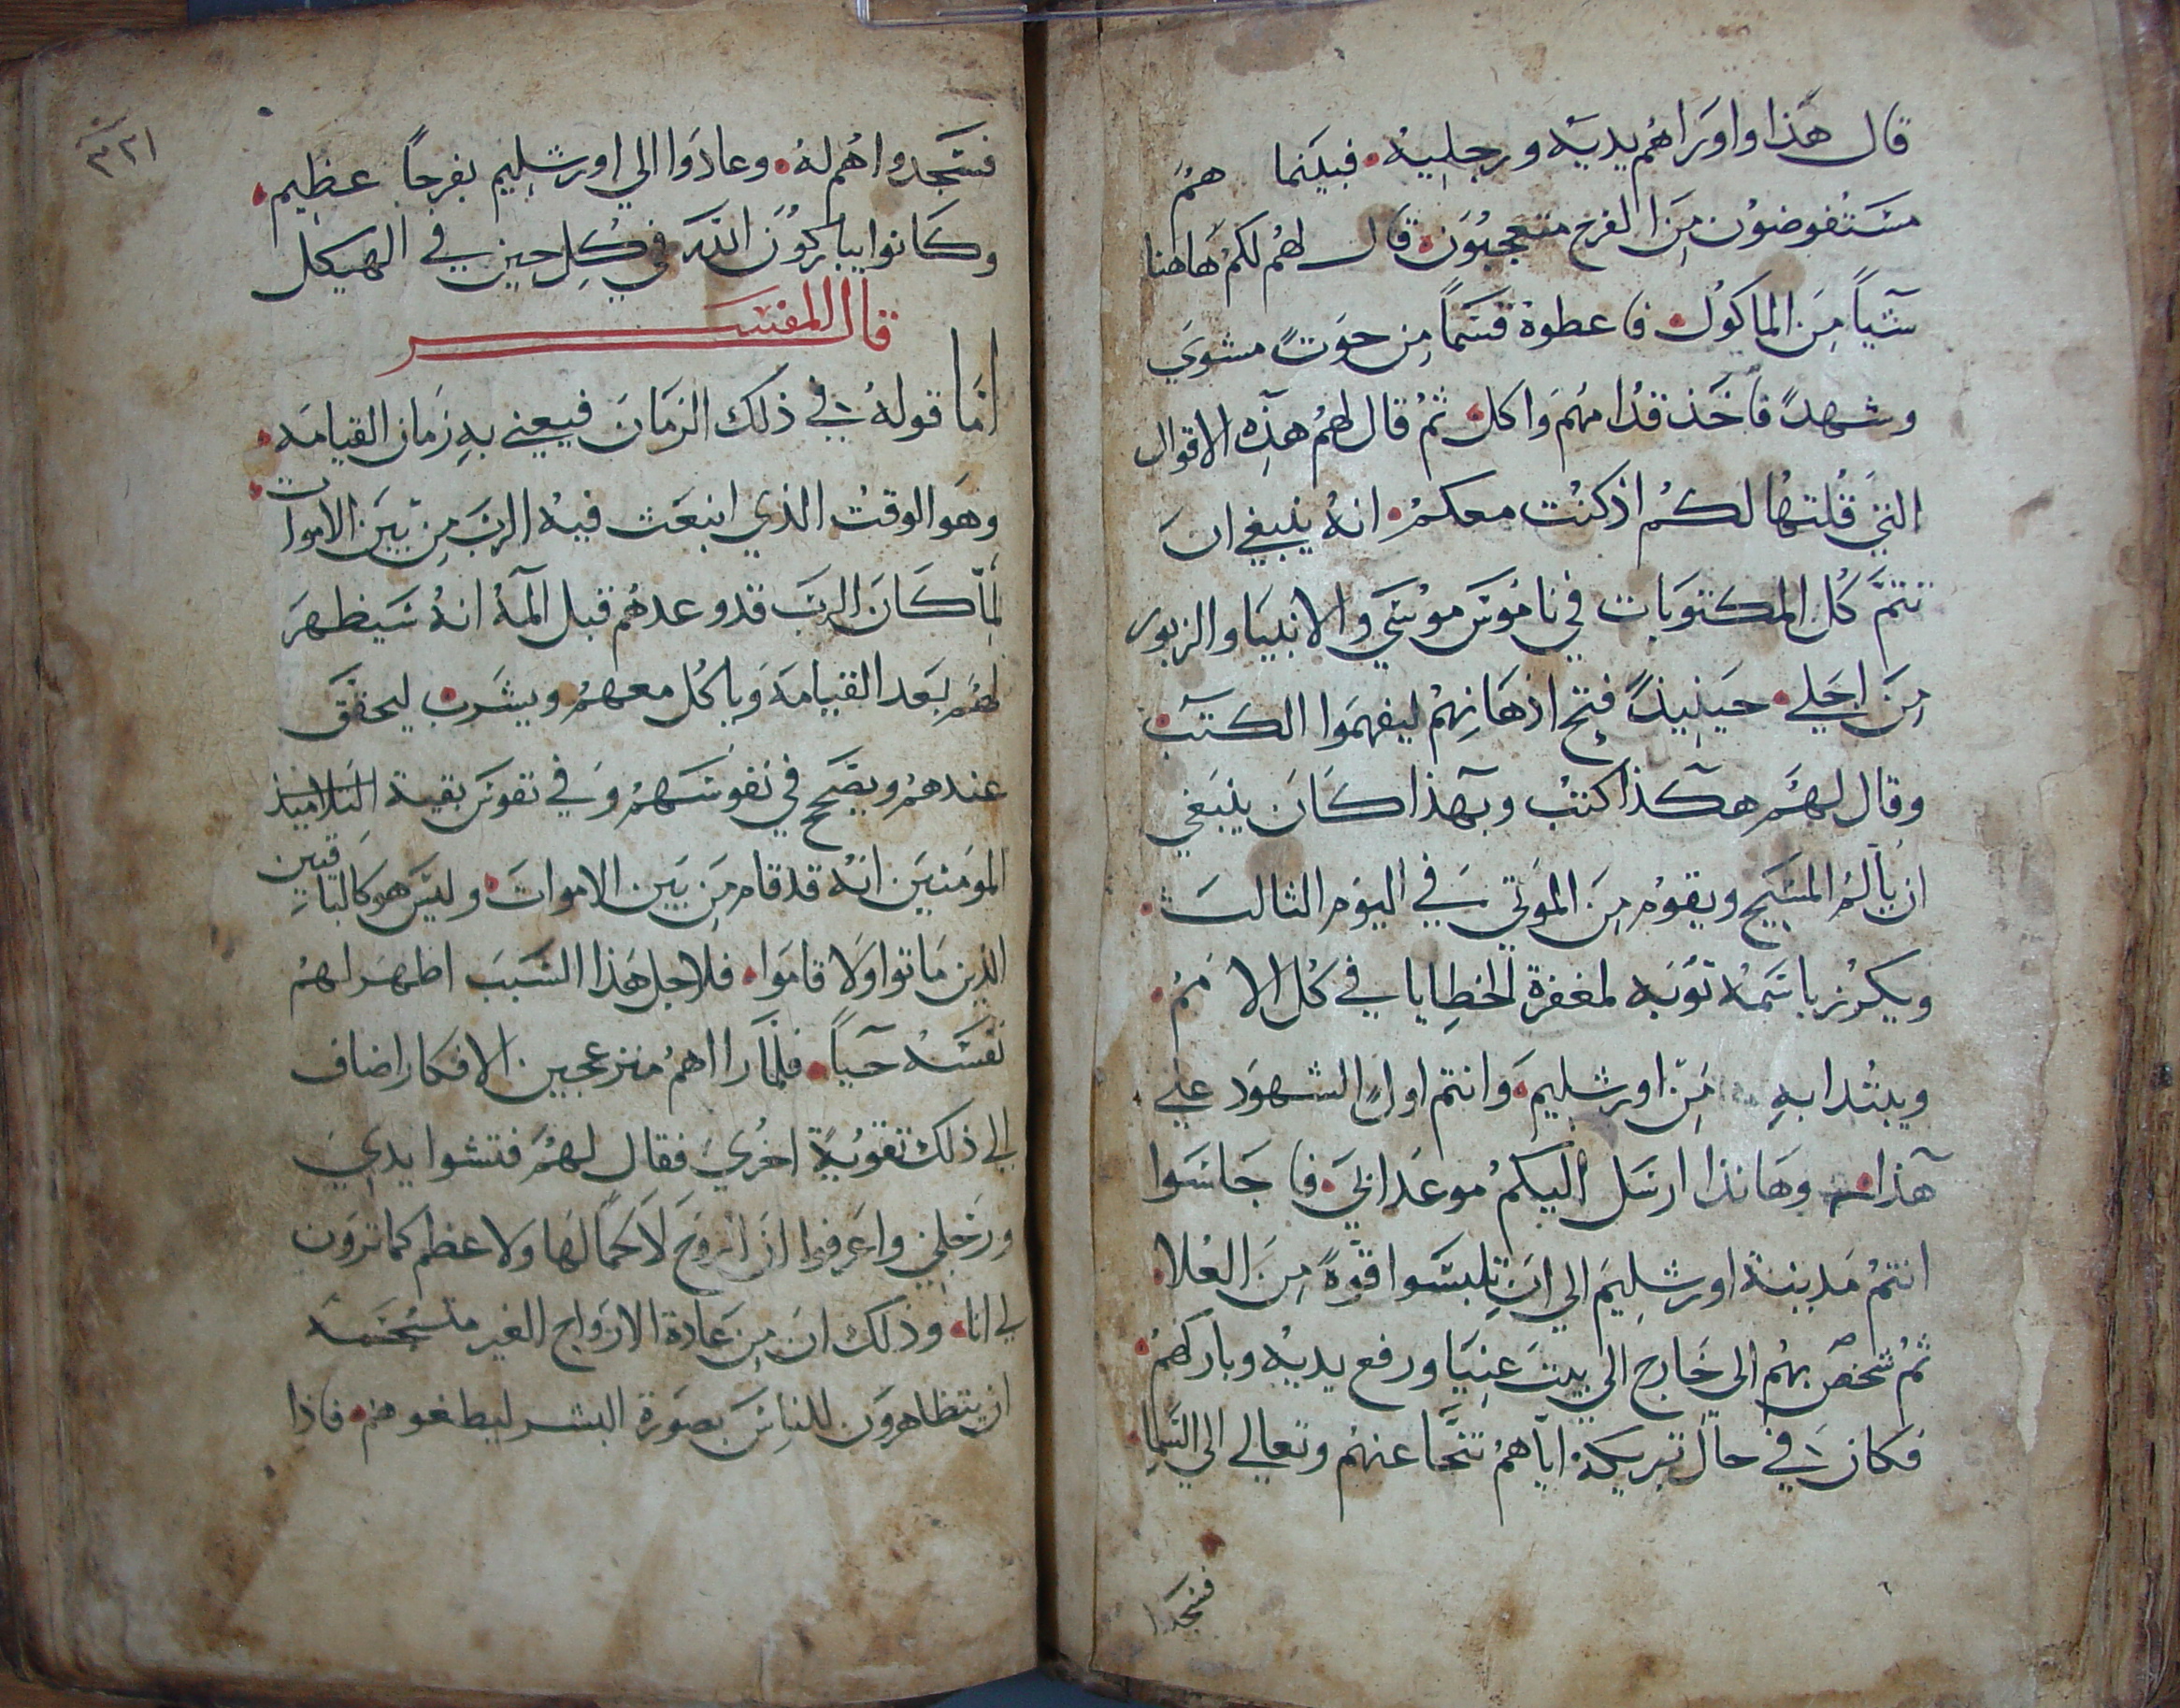 قال هذا واوراهم يديه ورجليه. فبينما هم
مستفوضون من الفرح متعجبون. قال لهم لكم هاهنا
شياً من الماكول. فاعطوه قسماً من حوت مشوي
وشهد فاخذ قدامهم واكل. ثم قال لهم هذه الاقوال
التي قلتها لكم اذ كنت معكم. انه ينبغي ان
تتم كل المكتوبات في ناموس موسي والانبيا والزبور
من اجلي. حينيذ فتح اذهانهم ليفهموا الكتب.
وقال لهم هكذا كتب وبهذا كان ينبغي
ان يالم المسيح ويقوم من الموتي في اليوم الثالث.
ويكرز باسمه توبه لمغفرة الخطايا في كل الامم.
ويبتدا به من اورشليم. وانتم اول الشهود علي
هذا. وهانذا ارسل اليكم موعد ابي. فاجلسوا
انتم مدينة اورشليم الي ان تلبسوا قوة من العلا.
ثم شخص بهم الي خارج الي بيت عنيا ورفع يديه وباركهم.
فكان في حال تبريكه اياهم تنحا عنهم وتعالي الي السما.
فسجدوا
٣٢١
فسجدوا هم له. وعادوا الي اورشليم بفرحاً عظيم.
وكانوا يباركون الله في كل حين في الهيكل
قال المفسر
اما قوله في ذلك الزمان فيعني به زمان القيامه.
وهو الوقت الذي انبعث فيه الرب من بين الاموات.
لما كان الرب قد وعدهم قبل المه انه سيظهر
لهم بعد القيامة وياكل معهم ويشرب. ليحقق
عندهم ويصح في نفوسهم وفي نفوس بقية التلاميذ
المومنين انه قد قام من بين الاموات. وليس هو كالباقين
الذين ماتوا ولا قاموا. فلاجل هذا السبب اظهر لهم
نفسه حياً. فلما راهم منزعجين الافكار اضاف
الي ذلك تقوية اخري فقال لهم فتشوا يدي
ورجلي واعرفوا لان الروح لا لحماً لها ولا عظم كما ترون
لي انا. وذلك ان من عادة الارواح الغير متجسمه
ان يتظاهرون للناس بصورة البشر ليطغوهم. فاذا